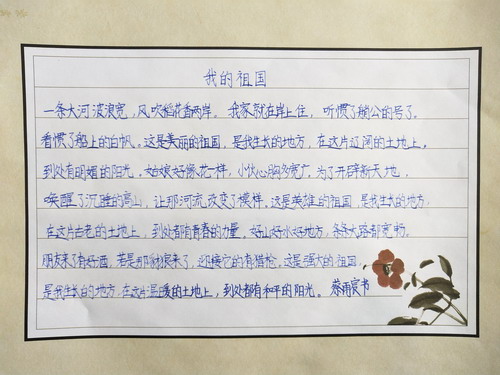 我的祖国
一条大河波浪宽，风吹稻花香两岸。我家就在岸上住，听惯了艄公的号子。
看惯了船上的白帆。这是美丽的祖国，是我生长的地方，在这片辽阔的土地上，
到处有明媚的阳光，姑娘好像花一样，小伙心胸多宽广，为了开辟新天地，
唤醒了沉睡的高山，让那河流改变了模样。这是英雄的祖国，是我生长的地方，
在这片古老的土地上，到处都有青春的力量。好山好水好地方，条条大路都宽畅。
朋友来了有好酒，若是那豺狼来了，迎接它的有猎枪。这是强大的祖国，
是我生长的地方，在这片温暖的土地上，到处都有和平的阳光。 蔡雨宸书